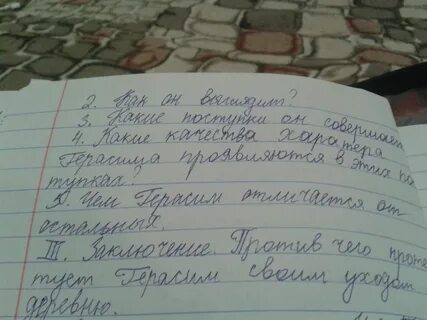 2. Как он выглядит?
3. Какие поступки он совершает
4. Какие качества характера
Герасима проявляются в этих пос
тупках?
5. Чем Герасим отличается от
остальных.
III. Заключение. Против чего проте
тует Герасим своим уходом
деревню.